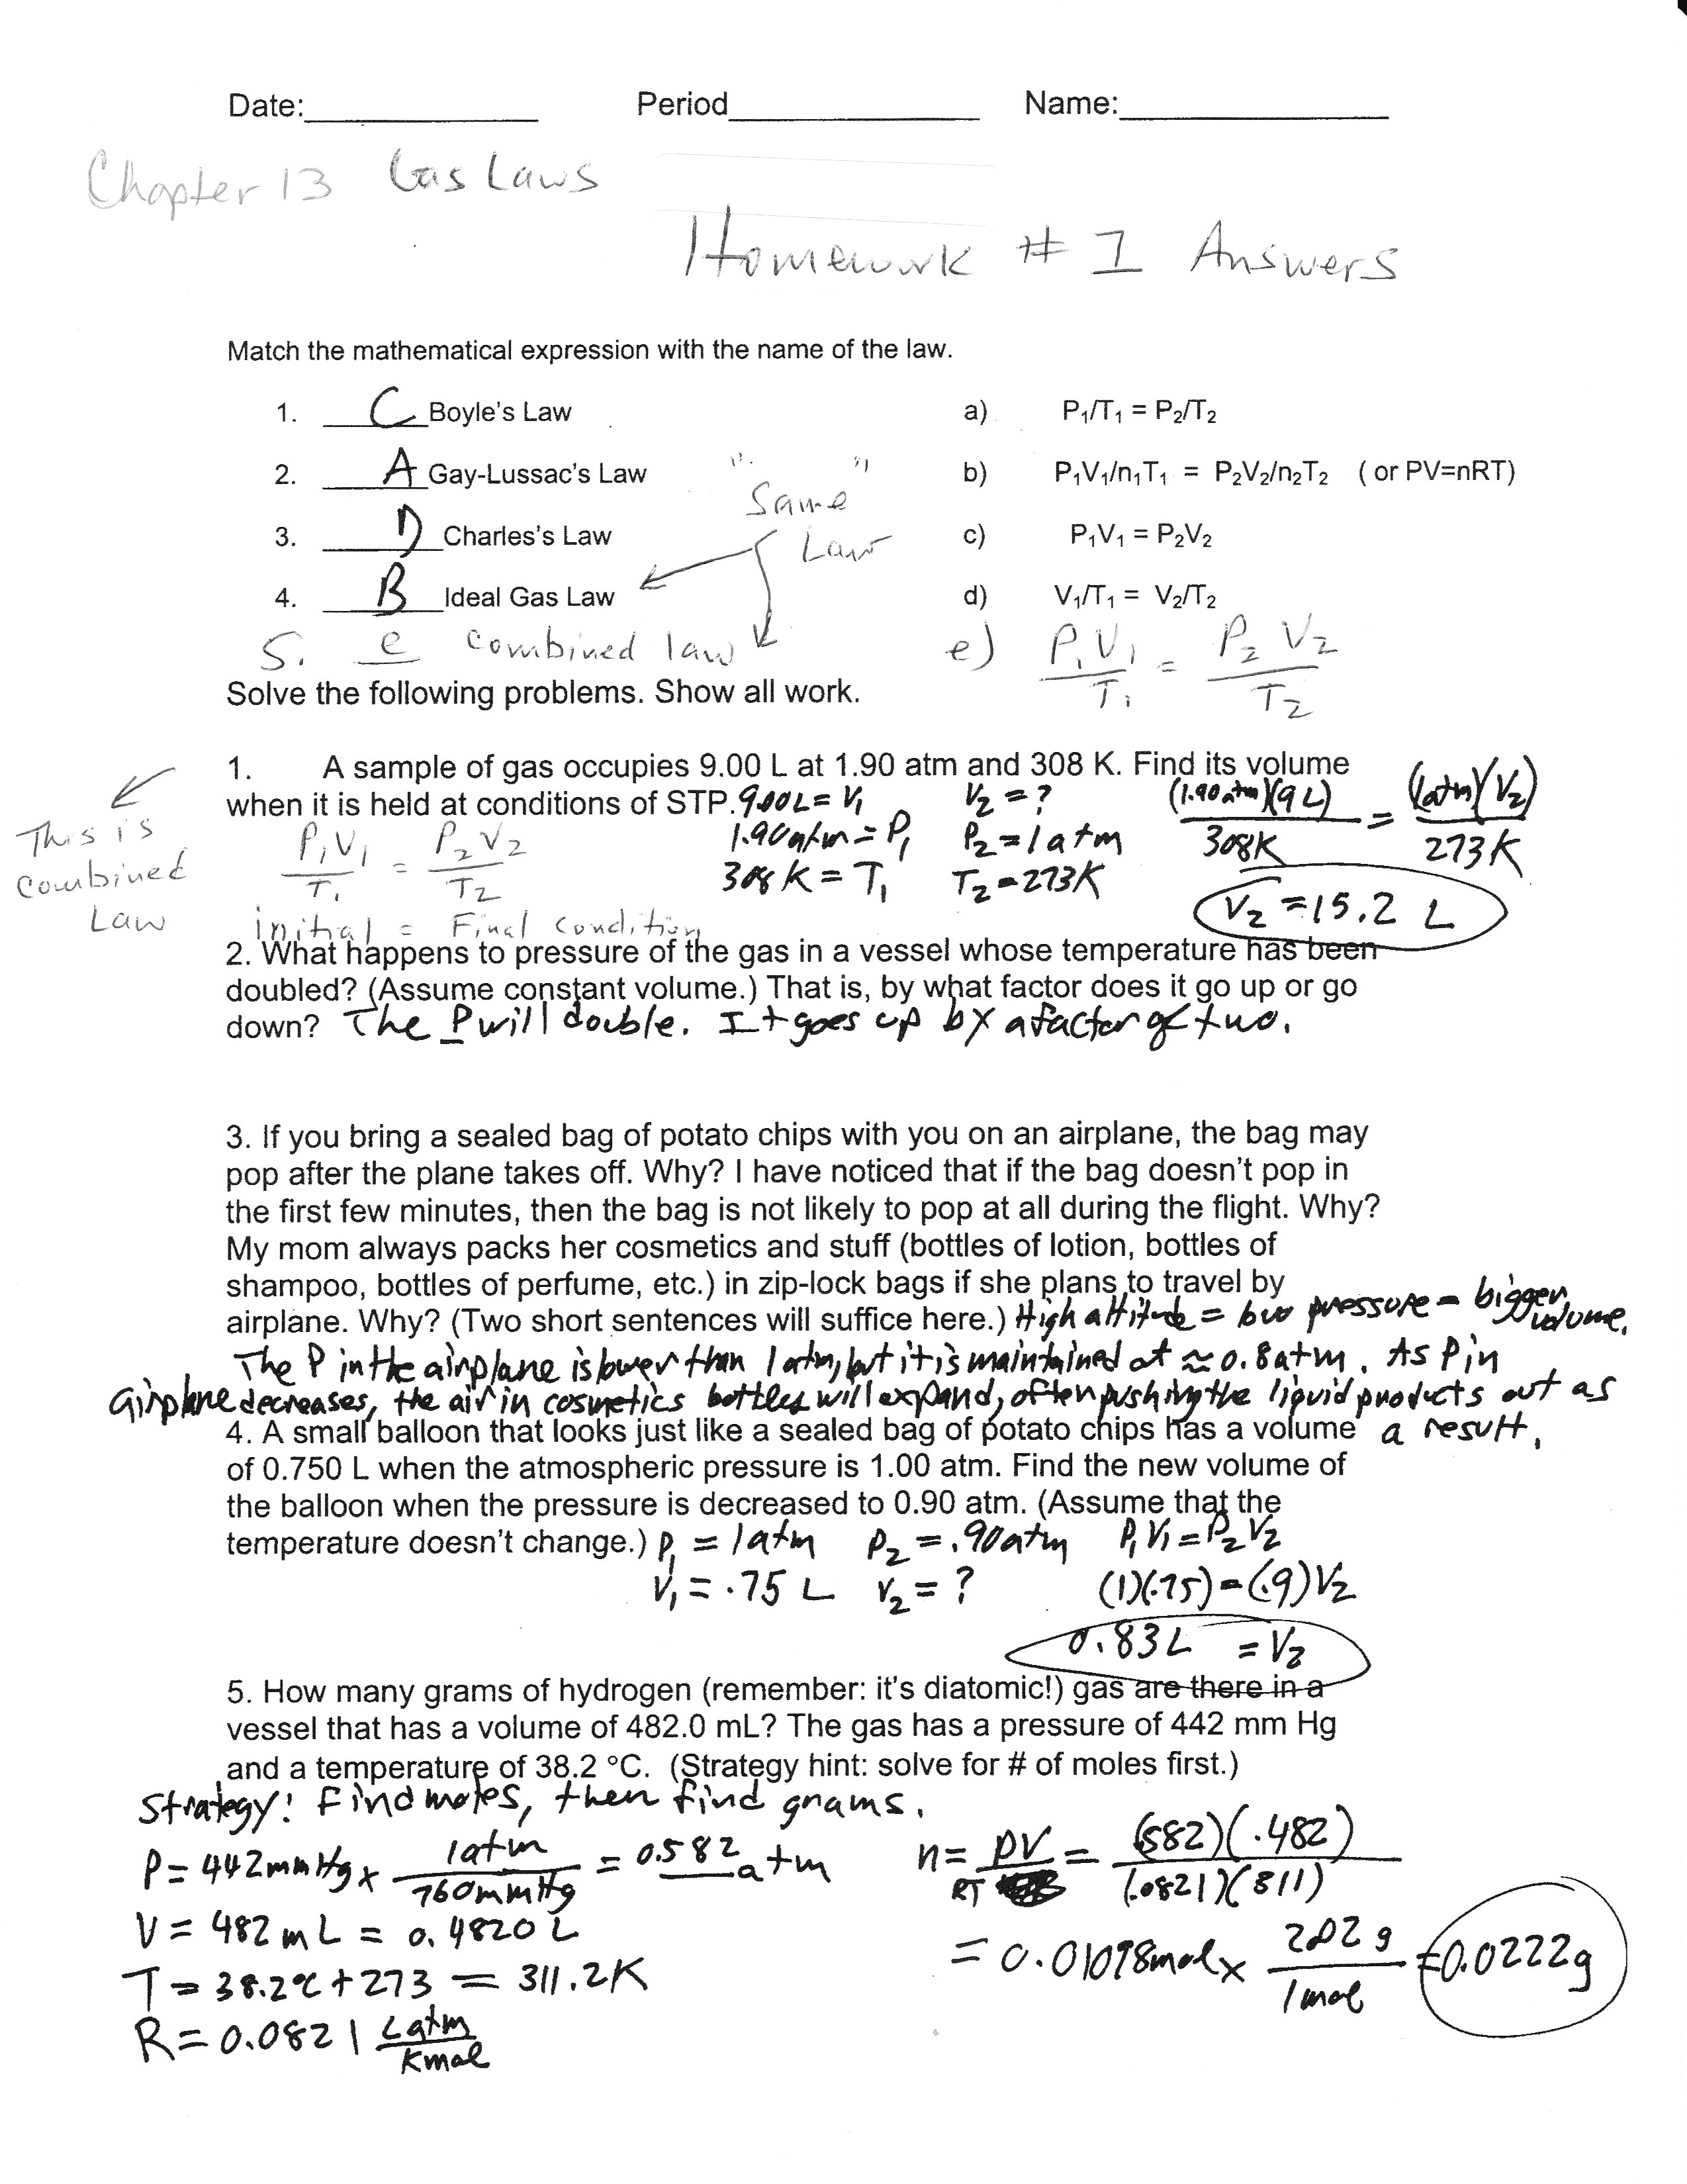 Date:____________ Period____________ Name:____________
Chapter 13 Gas Laws
Homework # 1 Answers
Match the mathematical expression with the name of the law.
1. C Boyle's Law a) P₁/T₁ = P₂/T₂
2. A Gay-Lussac's Law b) P₁V₁/n₁T₁ = P₂V₂/n₂T₂ ( or PV=nRT)
"Same
3. D Charles's Law Law" c) P₁V₁ = P₂V₂
4. B Ideal Gas Law d) V₁/T₁ = V₂/T₂
5. e combined law e) P₁V₁/T₁ = P₂V₂/T₂
Solve the following problems. Show all work.
1. A sample of gas occupies 9.00 L at 1.90 atm and 308 K. Find its volume
when it is held at conditions of STP. 9.00L = V₁ V₂ = ? (1.90atm)(9L)/308K = (1atm)(V₂)/273K
This is
combined
Law
P₁V₁/T₁ = P₂V₂/T₂ 1.90atm = P₁ P₂ = 1atm
308K = T₁ T₂ = 273K
V₂ = 15.2 L
initial = Final condition
2. What happens to pressure of the gas in a vessel whose temperature has been
doubled? (Assume constant volume.) That is, by what factor does it go up or go
down? The P will double. It goes up by a factor of two.
3. If you bring a sealed bag of potato chips with you on an airplane, the bag may
pop after the plane takes off. Why? I have noticed that if the bag doesn't pop in
the first few minutes, then the bag is not likely to pop at all during the flight. Why?
My mom always packs her cosmetics and stuff (bottles of lotion, bottles of
shampoo, bottles of perfume, etc.) in zip-lock bags if she plans to travel by
airplane. Why? (Two short sentences will suffice here.) High altitude = low pressure = bigger volume.
The P in the airplane is lower than 1atm, but it is maintained at ≈ 0.8atm. As P in
airplane decreases, the air in cosmetics bottles will expand, often pushing the liquid products out as
a result.
4. A small balloon that looks just like a sealed bag of potato chips has a volume
of 0.750 L when the atmospheric pressure is 1.00 atm. Find the new volume of
the balloon when the pressure is decreased to 0.90 atm. (Assume that the
temperature doesn't change.) P₁ = 1atm P₂ = .90atm P₁V₁ = P₂V₂
V₁ = .75 L V₂ = ? (1)(.75) = (.9)V₂
0.83L = V₂
5. How many grams of hydrogen (remember: it's diatomic!) gas are there in a
vessel that has a volume of 482.0 mL? The gas has a pressure of 442 mm Hg
and a temperature of 38.2 ºC. (Strategy hint: solve for # of moles first.)
Strategy: Find moles, then find grams.
P = 442mmHg x 1atm/760mmHg = 0.582 atm n = PV/RT = (.582)(.482)/(.0821)(311)
V = 482 mL = 0.4820 L = 0.01098mol x 2.02g/1mol = 0.0222g
T = 38.2°C + 273 = 311.2K
R = 0.0821 Latm/Kmol